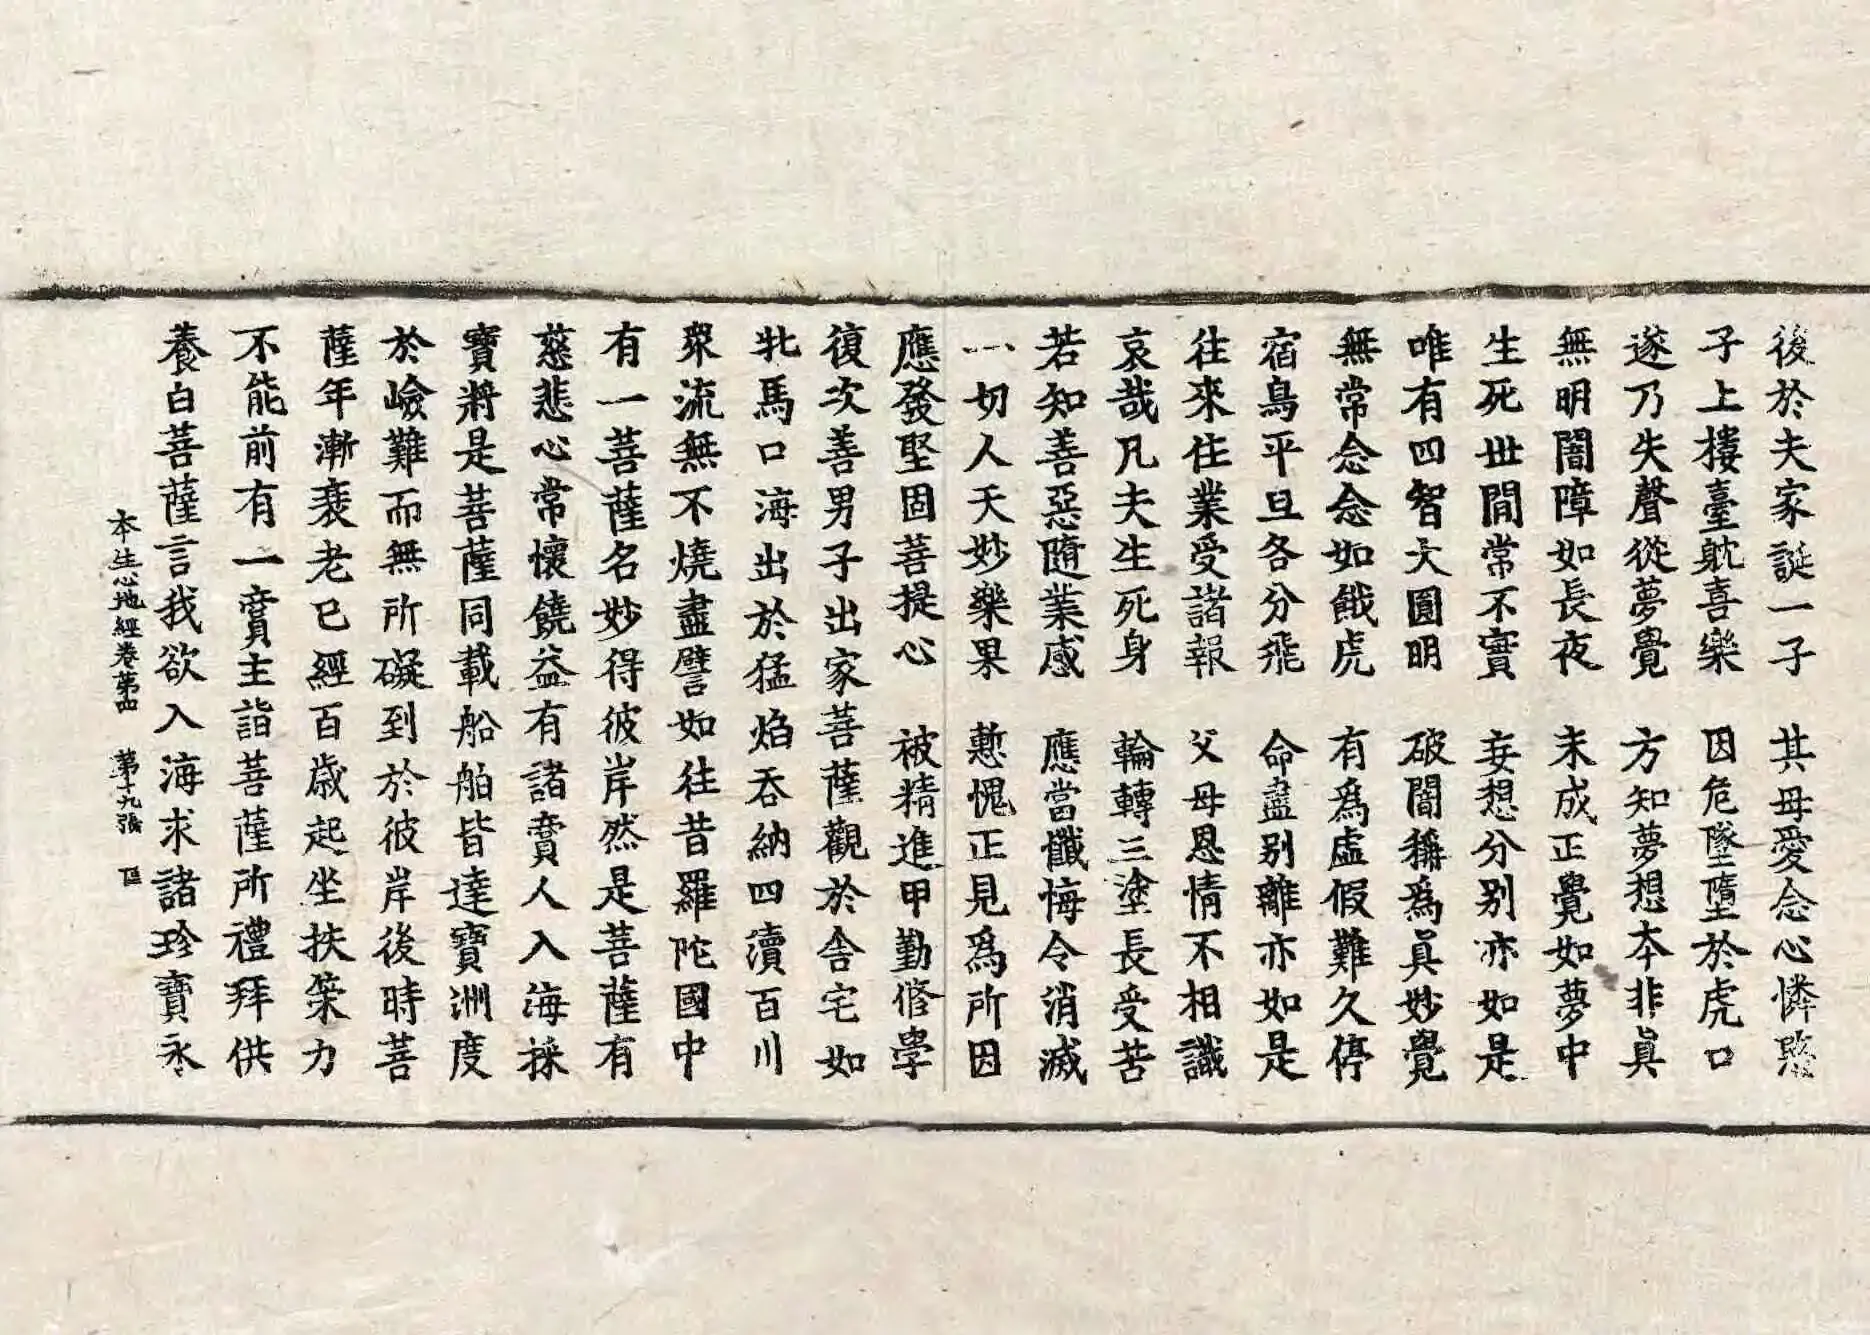 後於夫家誕一子　其母愛念心憐愍
子上樓臺躭喜樂　因危墜墮於虎口
遂乃失聲從夢覺　方知夢想本非真
無明闇障如長夜　未成正覺如夢中
生死世間常不實　妄想分别亦如是
唯有四智大圓明　破闇稱為真妙覺
無常念念如餓虎　有為虛假難久停
宿鳥平旦各分飛　命盡别離亦如是
往來住業受諸報　父母恩情不相識
哀哉凡夫生死身　輪轉三塗長受苦
若知善惡隨業感　應當懺悔令消滅
一切人天妙樂果　慙愧正見為所因
應發堅固菩提心　被精進甲勤修學
復次善男子出家菩薩觀於舍宅如
牝馬口海出於猛焰吞納四瀆百川
眾流無不燒盡譬如往昔羅陀國中
有一菩薩名妙得彼岸然是菩薩有
慈悲心常懷饒益有諸賣人入海採
寶將是菩薩同載船舶皆達寶洲度
於嶮難而無所礙到於彼岸後時菩
薩年漸衰老已經百歲起坐扶策力
不能前有一賣主詣菩薩所禮拜供
養白菩薩言我欲入海求諸珍寶永
本生心地經卷第四　第十九張